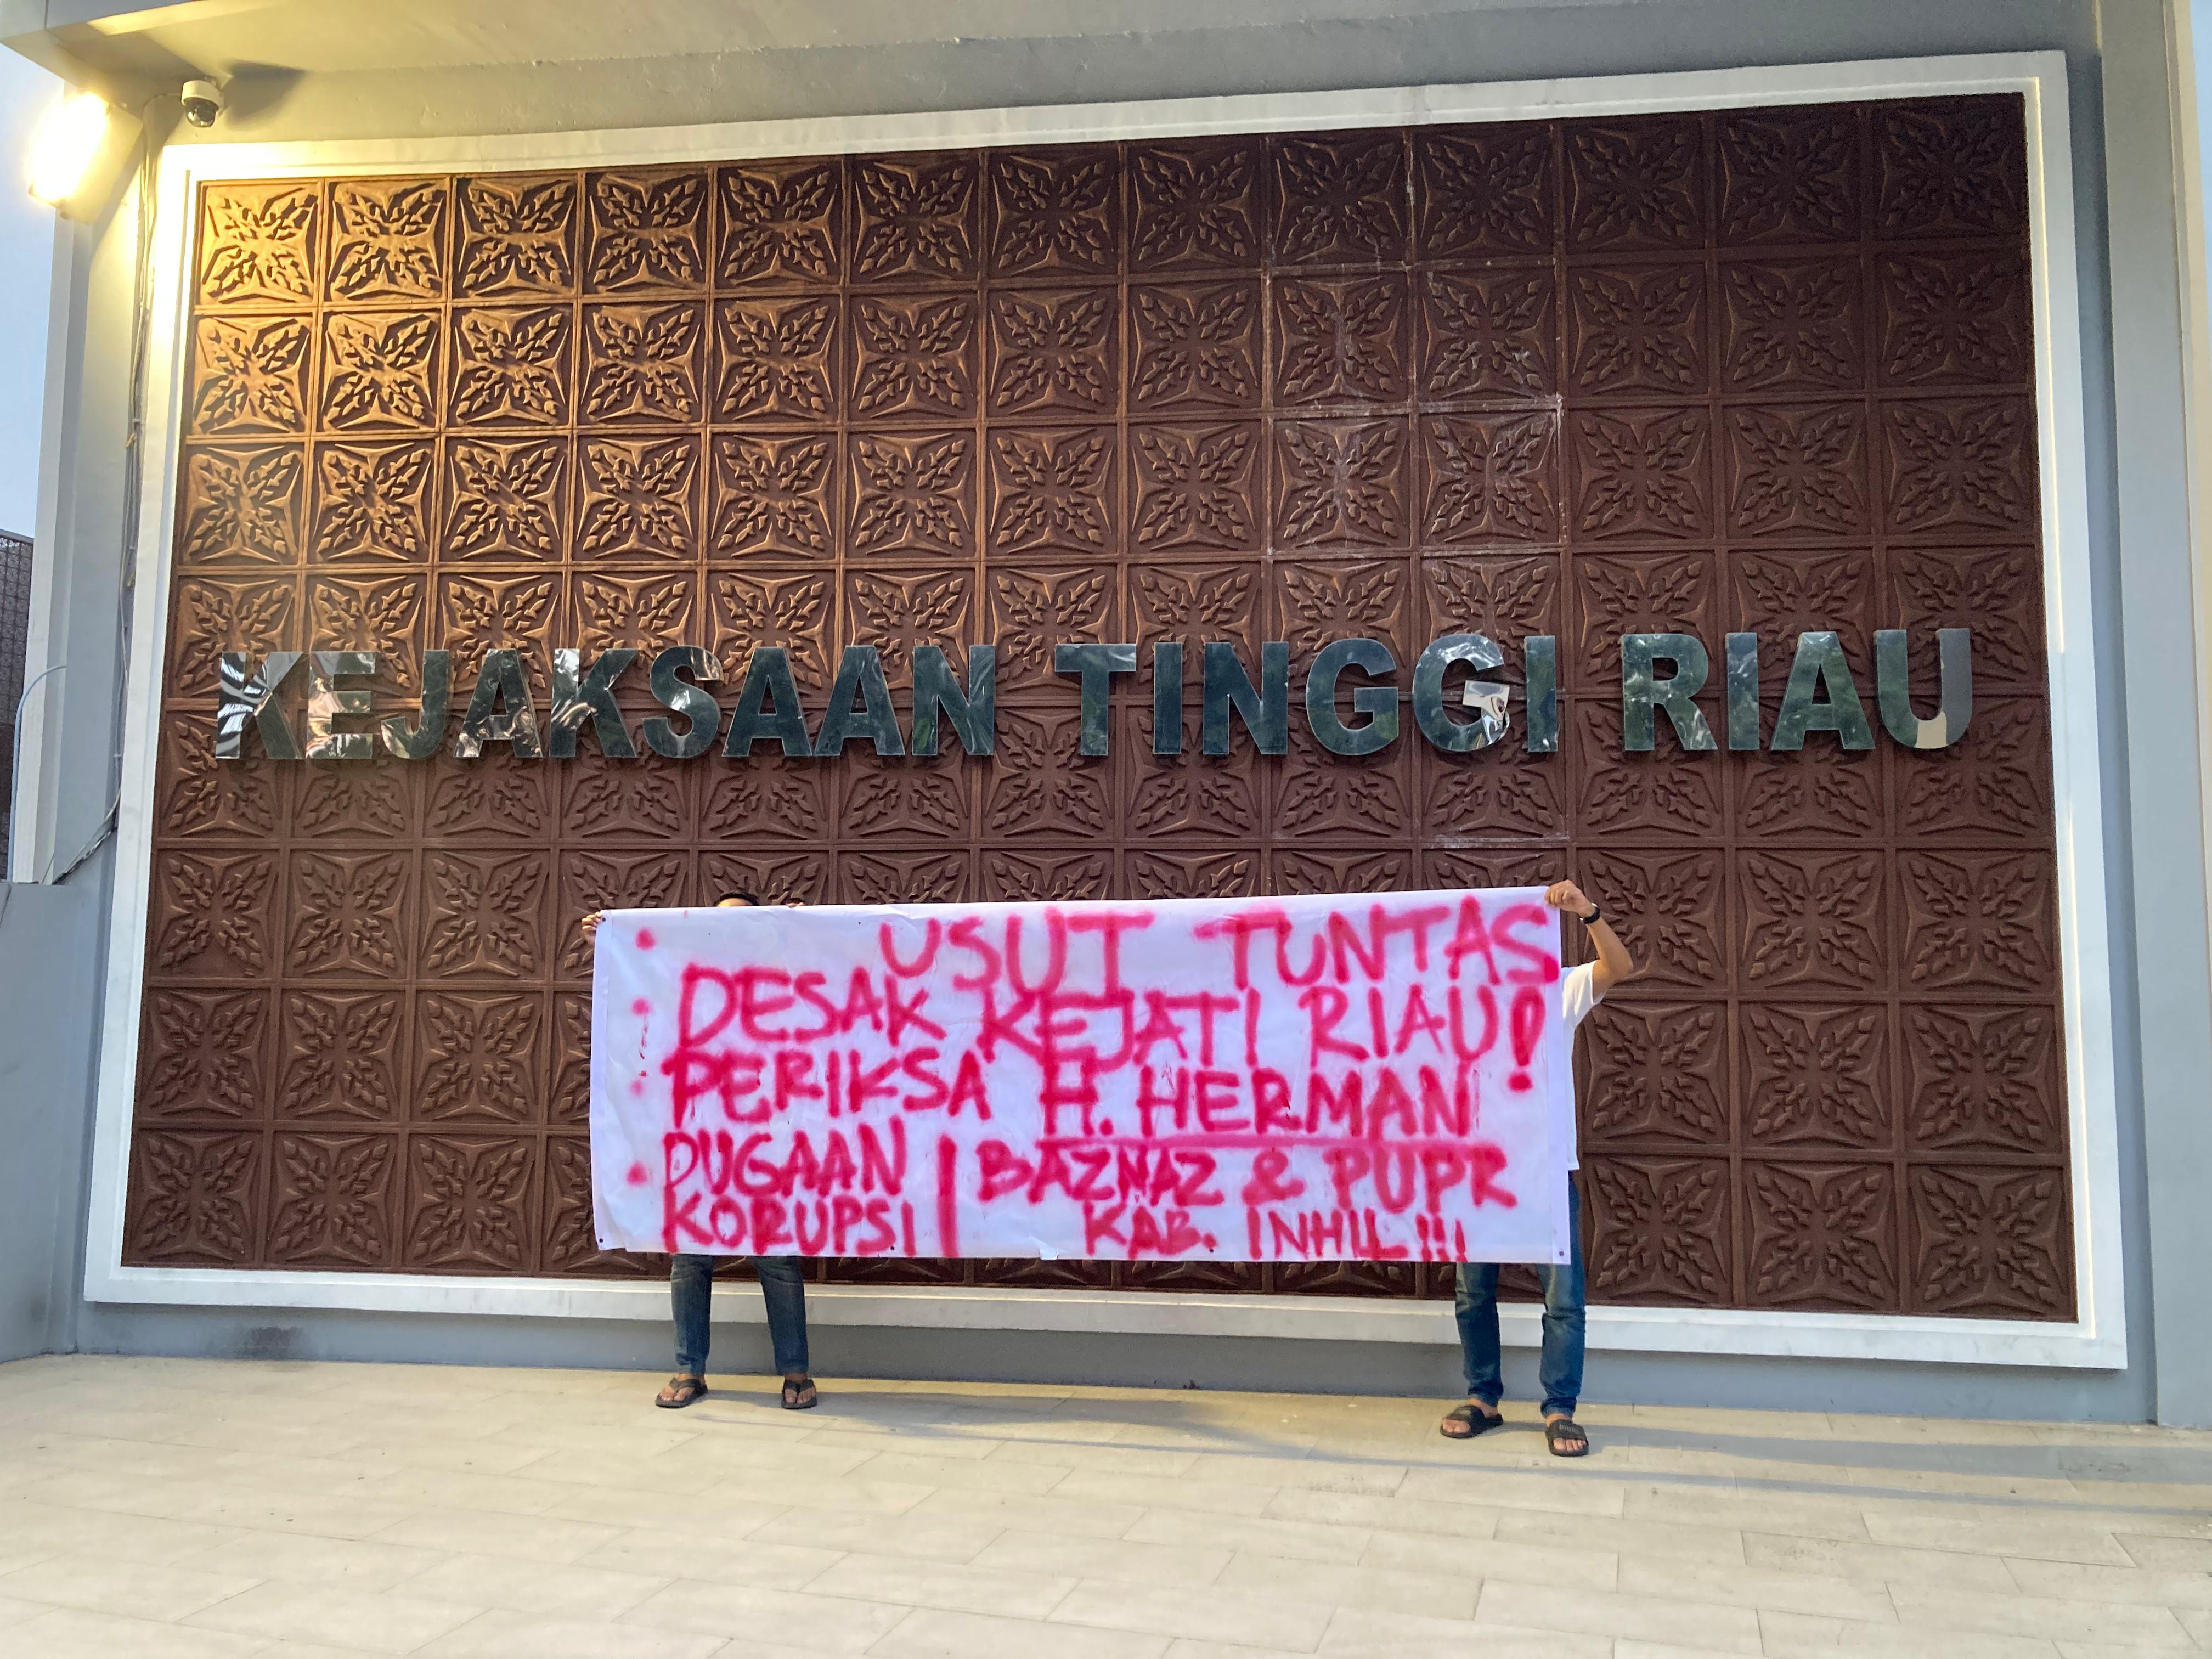 KEJAKSAAN TINGGI RIAU
USUT TUNTAS
DESAK KEJATI RIAU!
PERIKSA H. HERMAN
DUGAAN KORUPSI | BAZNAZ & PUPR
KAB. INHIL!!!